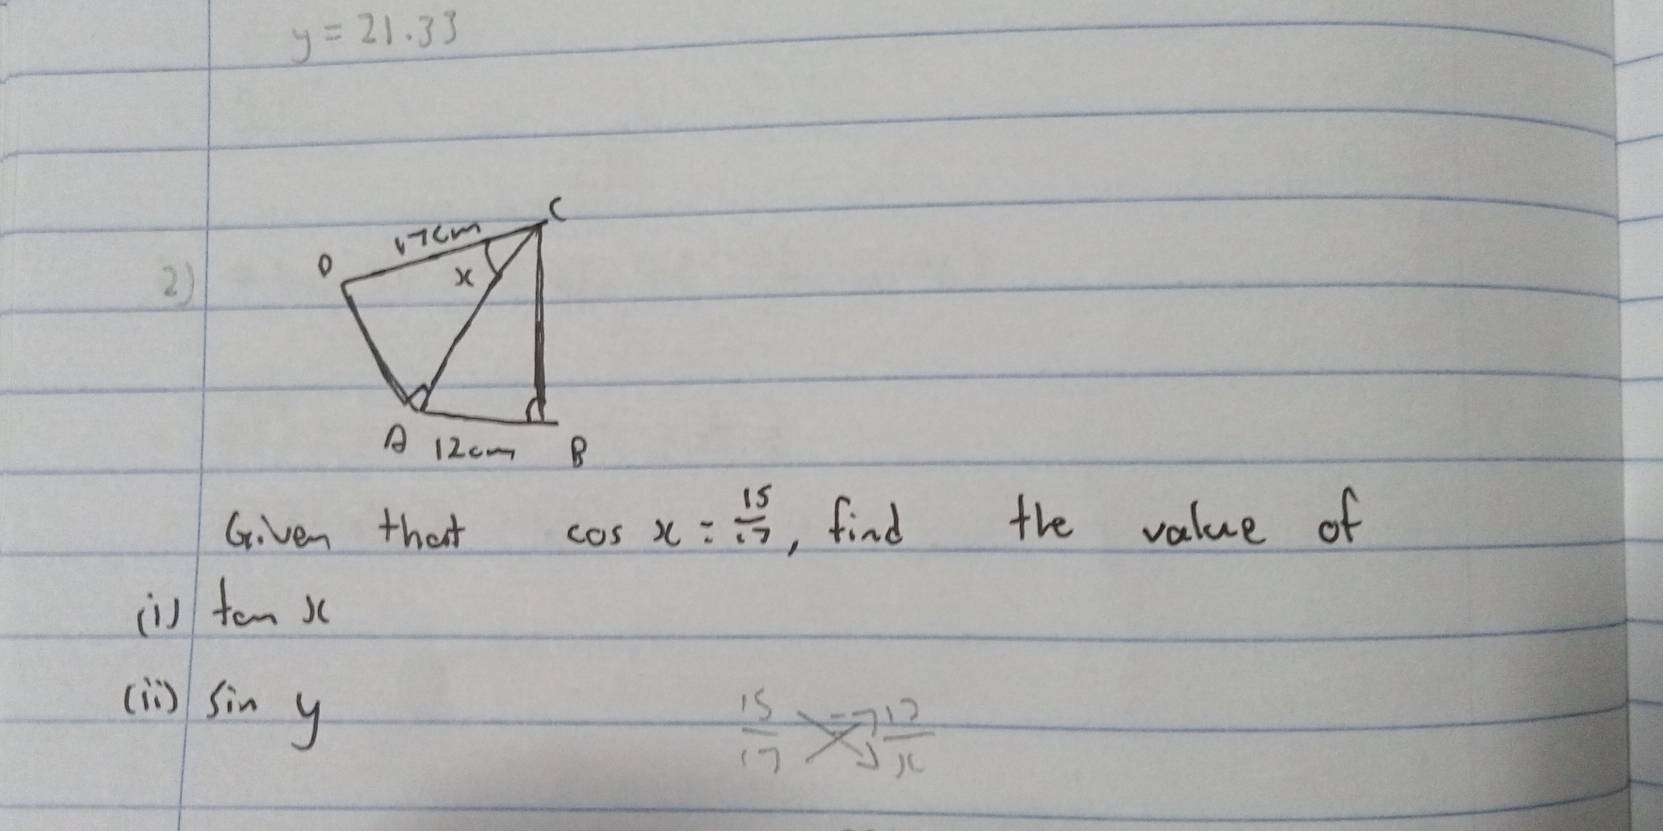 y = 21.33
C
17cm
D
x
2)
A 12cm B
Given that cos x = 15/17, find the value of
(i) tan x
(ii) sin y
15/17 12/x